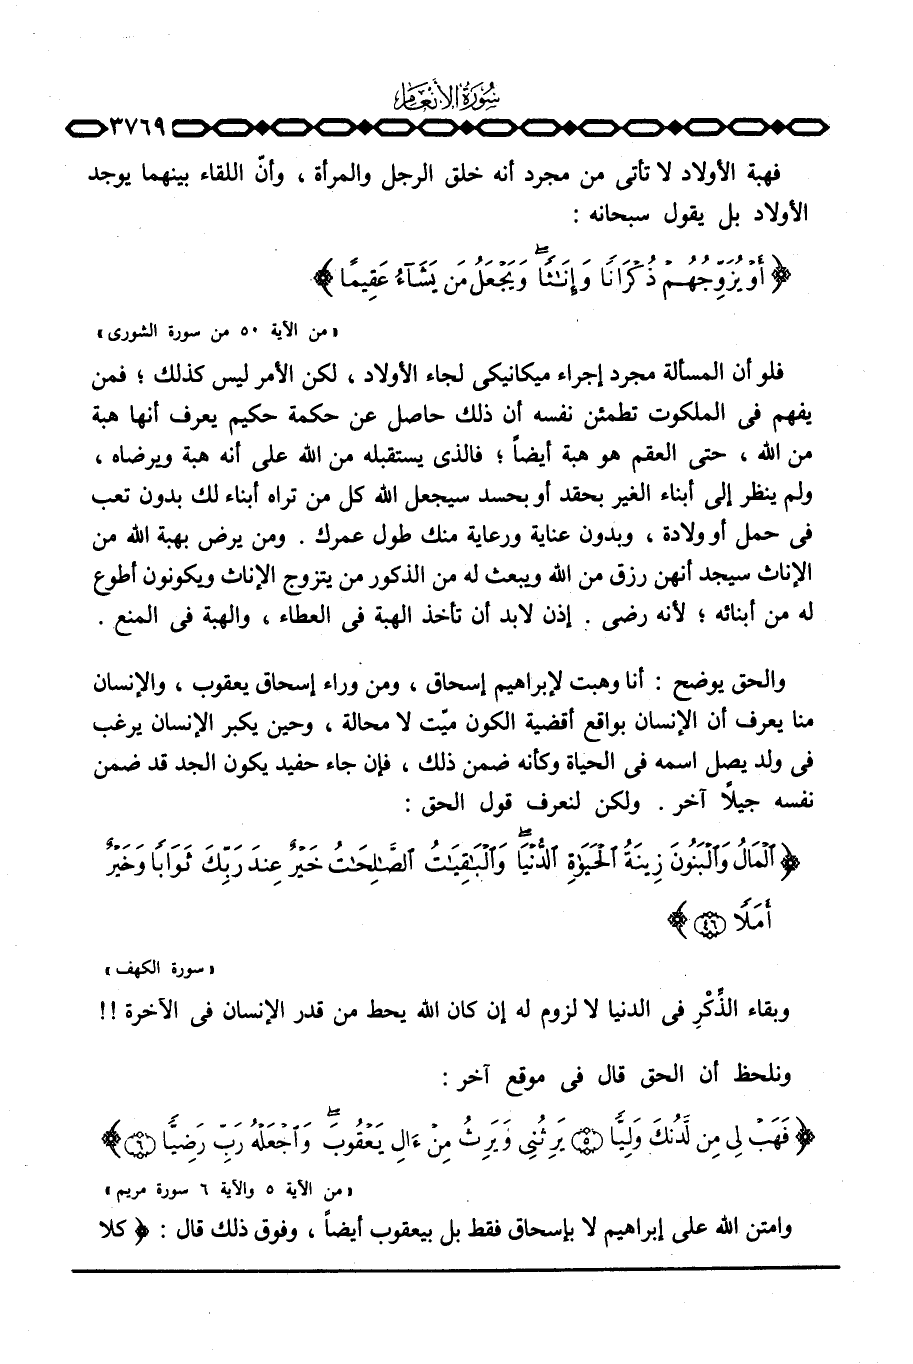 سورة الأنعام
٣٧٦٩
فهبة الأولاد لا تأتى من مجرد أنه خلق الرجل والمرأة ، وأنّ اللقاء بينهما يوجد
الأولاد بل يقول سبحانه :
﴿ أَوْ يُزَوِّجُهُمْ ذُكْرَانًا وَإِنَٰثًا ۖ وَيَجْعَلُ مَن يَشَآءُ عَقِيمًا ﴾
« من الآية ٥٠ من سورة الشورى »
فلو أن المسألة مجرد إجراء ميكانيكى لجاء الأولاد ، لكن الأمر ليس كذلك ؛ فمن
يفهم فى الملكوت تطمئن نفسه أن ذلك حاصل عن حكمة حكيم يعرف أنها هبة
من الله ، حتى العقم هو هبة أيضاً ؛ فالذى يستقبله من الله على أنه هبة ويرضاه ،
ولم ينظر إلى أبناء الغير بحقد أو بحسد سيجعل الله كل من تراه أبناء لك بدون تعب
فى حمل أو ولادة ، وبدون عناية ورعاية منك طول عمرك . ومن يرض بهبة الله من
الإناث سيجد أنهن رزق من الله ويبعث له من الذكور من يتزوج الإناث ويكونون أطوع
له من أبنائه ؛ لأنه رضى . إذن لابد أن تأخذ الهبة فى العطاء ، والهبة فى المنع .
والحق يوضح : أنا وهبت لإبراهيم إسحاق ، ومن وراء إسحاق يعقوب ، والإنسان
منا يعرف أن الإنسان بواقع أقضية الكون ميّت لا محالة ، وحين يكبر الإنسان يرغب
فى ولد يصل اسمه فى الحياة وكأنه ضمن ذلك ، فإن جاء حفيد يكون الجد قد ضمن
نفسه جيلًا آخر . ولكن لنعرف قول الحق :
﴿ ٱلْمَالُ وَٱلْبَنُونَ زِينَةُ ٱلْحَيَوٰةِ ٱلدُّنْيَا ۖ وَٱلْبَٰقِيَٰتُ ٱلصَّٰلِحَٰتُ خَيْرٌ عِندَ رَبِّكَ ثَوَابًا وَخَيْرٌ
أَمَلًا ٤٦ ﴾
« سورة الكهف »
وبقاء الذِّكْرِ فى الدنيا لا لزوم له إن كان الله يحط من قدر الإنسان فى الآخرة !!
ونلحظ أن الحق قال فى موقع آخر :
﴿ فَهَبْ لِى مِن لَّدُنكَ وَلِيًّا ٥ يَرِثُنِى وَيَرِثُ مِنْ ءَالِ يَعْقُوبَ ۖ وَٱجْعَلْهُ رَبِّ رَضِيًّا ٦ ﴾
« من الآية ٥ والآية ٦ سورة مريم »
وامتن الله على إبراهيم لا بإسحاق فقط بل بيعقوب أيضاً ، وفوق ذلك قال : ﴿ كلا